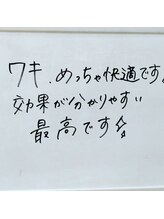 ワキ、めっちゃ快適です。
効果が分かりやすい
最高です☆